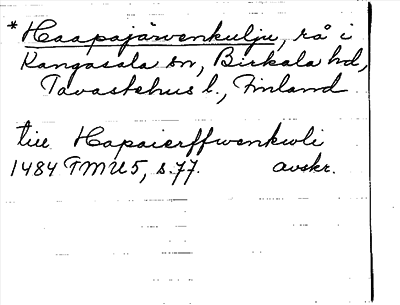 * Haapajärvenkulju, rå i
Kangasala sn, Birkala hd,
Tavastehus l., Finland
till Hapaierffwenkwli
1484 FMU5, s.77. avskr.